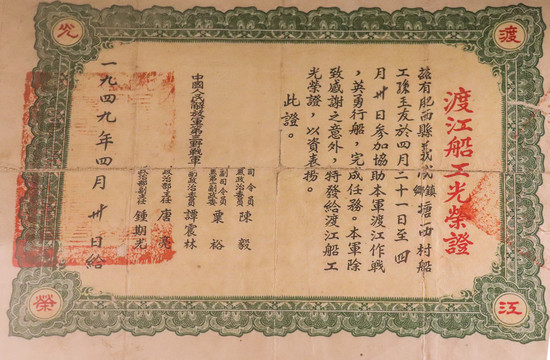 渡江船工光榮證
茲有肥西縣義城鎮鄉塘西村船
工孫玉友於四月二十一日至四
月卅日參加協助本軍渡江作戰
，英勇行船，完成任務。本軍除
致感謝之意外，特發給渡江船工
光榮證，以資表揚。
此證。
中國人民解放軍第三野戰軍
司令員
兼政治委員
陳毅
副司令員
兼第二副政委
粟裕
副政治委員
譚震林
政治部主任
唐亮
政治部副主任
鍾期光
一九四九年四月卅日給
渡
江
光
榮